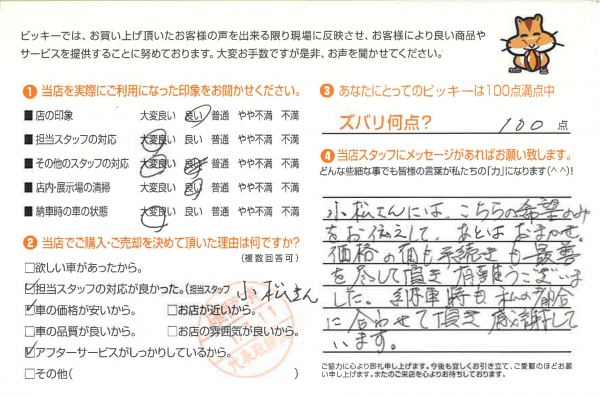 ビッキーでは、お買い上げ頂いたお客様の声を出来る限り現場に反映させ、お客様により良い商品や
サービスを提供することに努めております。大変お手数ですが是非、お声を聞かせてください。
1 当店を実際にご利用になった印象をお聞かせください。
■店の印象 大変良い 良い 普通 やや不満 不満
■担当スタッフの対応 大変良い 良い 普通 やや不満 不満
■その他のスタッフの対応 大変良い 良い 普通 やや不満 不満
■店内・展示場の清掃 大変良い 良い 普通 やや不満 不満
■納車時の車の状態 大変良い 良い 普通 やや不満 不満
2 当店でご購入・ご売却を決めて頂いた理由は何ですか?
(複数回答可)
□欲しい車があったから。
☑担当スタッフの対応が良かった。(担当スタッフ 小松さん
☑車の価格が安いから。 □お店が近いから。
□車の品質が良いから。 □お店の雰囲気が良いから。
☑アフターサービスがしっかりしているから。
□その他( )
3 あなたにとってのビッキーは100点満点中
ズバリ何点? 100 点
4 当店スタッフにメッセージがあればお願い致します。
どんな些細な事でも皆様の言葉が私たちの「力」になります(^^)!
小松さんには、こちらの希望のみ
をお伝えして、あとはおまかせ。
価格の面も手続きも最善
を尽して頂き有難うございま
した。納車時も私の都合
に合わせて頂き感謝して
います。
ご協力に心より御礼申し上げます。今後も宜しくお引き立て、ご愛顧のほどお願
い申し上げます。またのご来店を心よりお待ちしております。